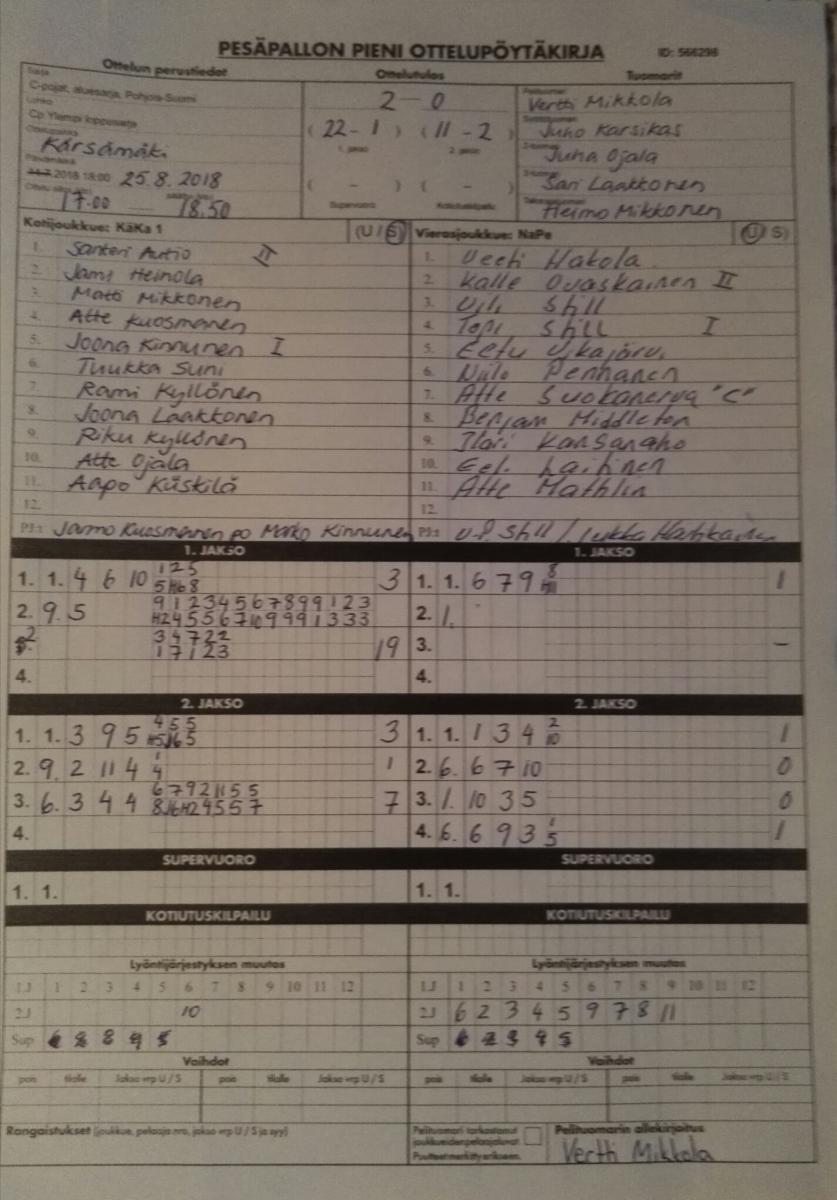 PESÄPALLON PIENI OTTELUPÖYTÄKIRJA ID: 566298
Ottelun perustiedot Ottelutulos Tuomarit
Sarja
C-pojat, aluesarja, Pohjois-Suomi
Lohko
Cp Ylempi loppusarja
Kärsämäki
2018 18:00 25.8. 2018
17.00 18.50
2 - 0
( 22 - 1 ) ( 11 - 2 )
1. jakso 2. jakso
( - ) ( - )
Supervuoro Kotiutuskilpailu
Vertti Mikkola
Juho Karsikas
Juha Ojala
Sari Laakkonen
Heimo Mikkonen
Kotijoukkue: KäKa 1 (U / S)
1. Santeri Autio II
2. Jami Heinola
3. Matti Mikkonen
4. Atte Kuosmanen
5. Joona Kinnunen I
6. Tuukka Suni
7. Rami Kyllönen
8. Joona Laakkonen
9. Riku Kyllönen
10. Atte Ojala
11. Aapo Käskilä
12.
PJ:t Jarmo Kuosmanen po Marko Kinnunen
Vierasjoukkue: NaPe (U / S)
1. Veeti Hakola
2. Kalle Ovaskainen II
3. Vili Still
4. Topi Still I
5. Eetu
6. Niilo Penhanen
7. Atte Suokanerva "C"
8. Benjam Middleton
9. Ilari Kansanaho
10. Eel. Laitinen
11. Atte Mathlin
12.
PJ:t V.P. Still / Jukka
1. JAKSO 1. JAKSO
1. 1. 4 6 10 1 2 5 3
2. 9. 5 9 1 2 3 4 5 6 7 8 9 9 1 2 3
3 4 7 2 2
1 7 1 2 3 19
4.
1. 1. 6 7 9 8 1
2. 1.
3. -
4.
2. JAKSO 2. JAKSO
1. 1. 3 9 5 4 5 5 3
2. 9. 2 11 4 1 4 1
3. 6. 3 4 4 6 7 9 2 11 5 5 7
4.
1. 1. 1 3 4 2 10 1
2. 6. 6 7 10 0
3. 1. 10 3 5 0
4. 6. 6 9 3 1 5 1
SUPERVUORO SUPERVUORO
1. 1. 1. 1.
KOTIUTUSKILPAILU KOTIUTUSKILPAILU
Lyöntijärjestyksen muutos Lyöntijärjestyksen muutos
1J 1 2 3 4 5 6 7 8 9 10 11 12 1J 1 2 3 4 5 6 7 8 9 10 11 12
2J 10 2J 6 2 3 4 5 9 7 8 11
Sup Sup
Vaihdot Vaihdot
pois tilalle Jakso vrp U / S pois tilalle Jakso vrp U / S pois tilalle Jakso vrp U / S pois tilalle Jakso vrp U / S
Rangaistukset (joukkue, pelaaja nro, jakso vrp U / S ja syy)
Pelituomari tarkastanut
joukkueiden pelaajaluvat.
Puutteet merkitty erikseen.
Pelituomarin allekirjoitus
Vertti Mikkola